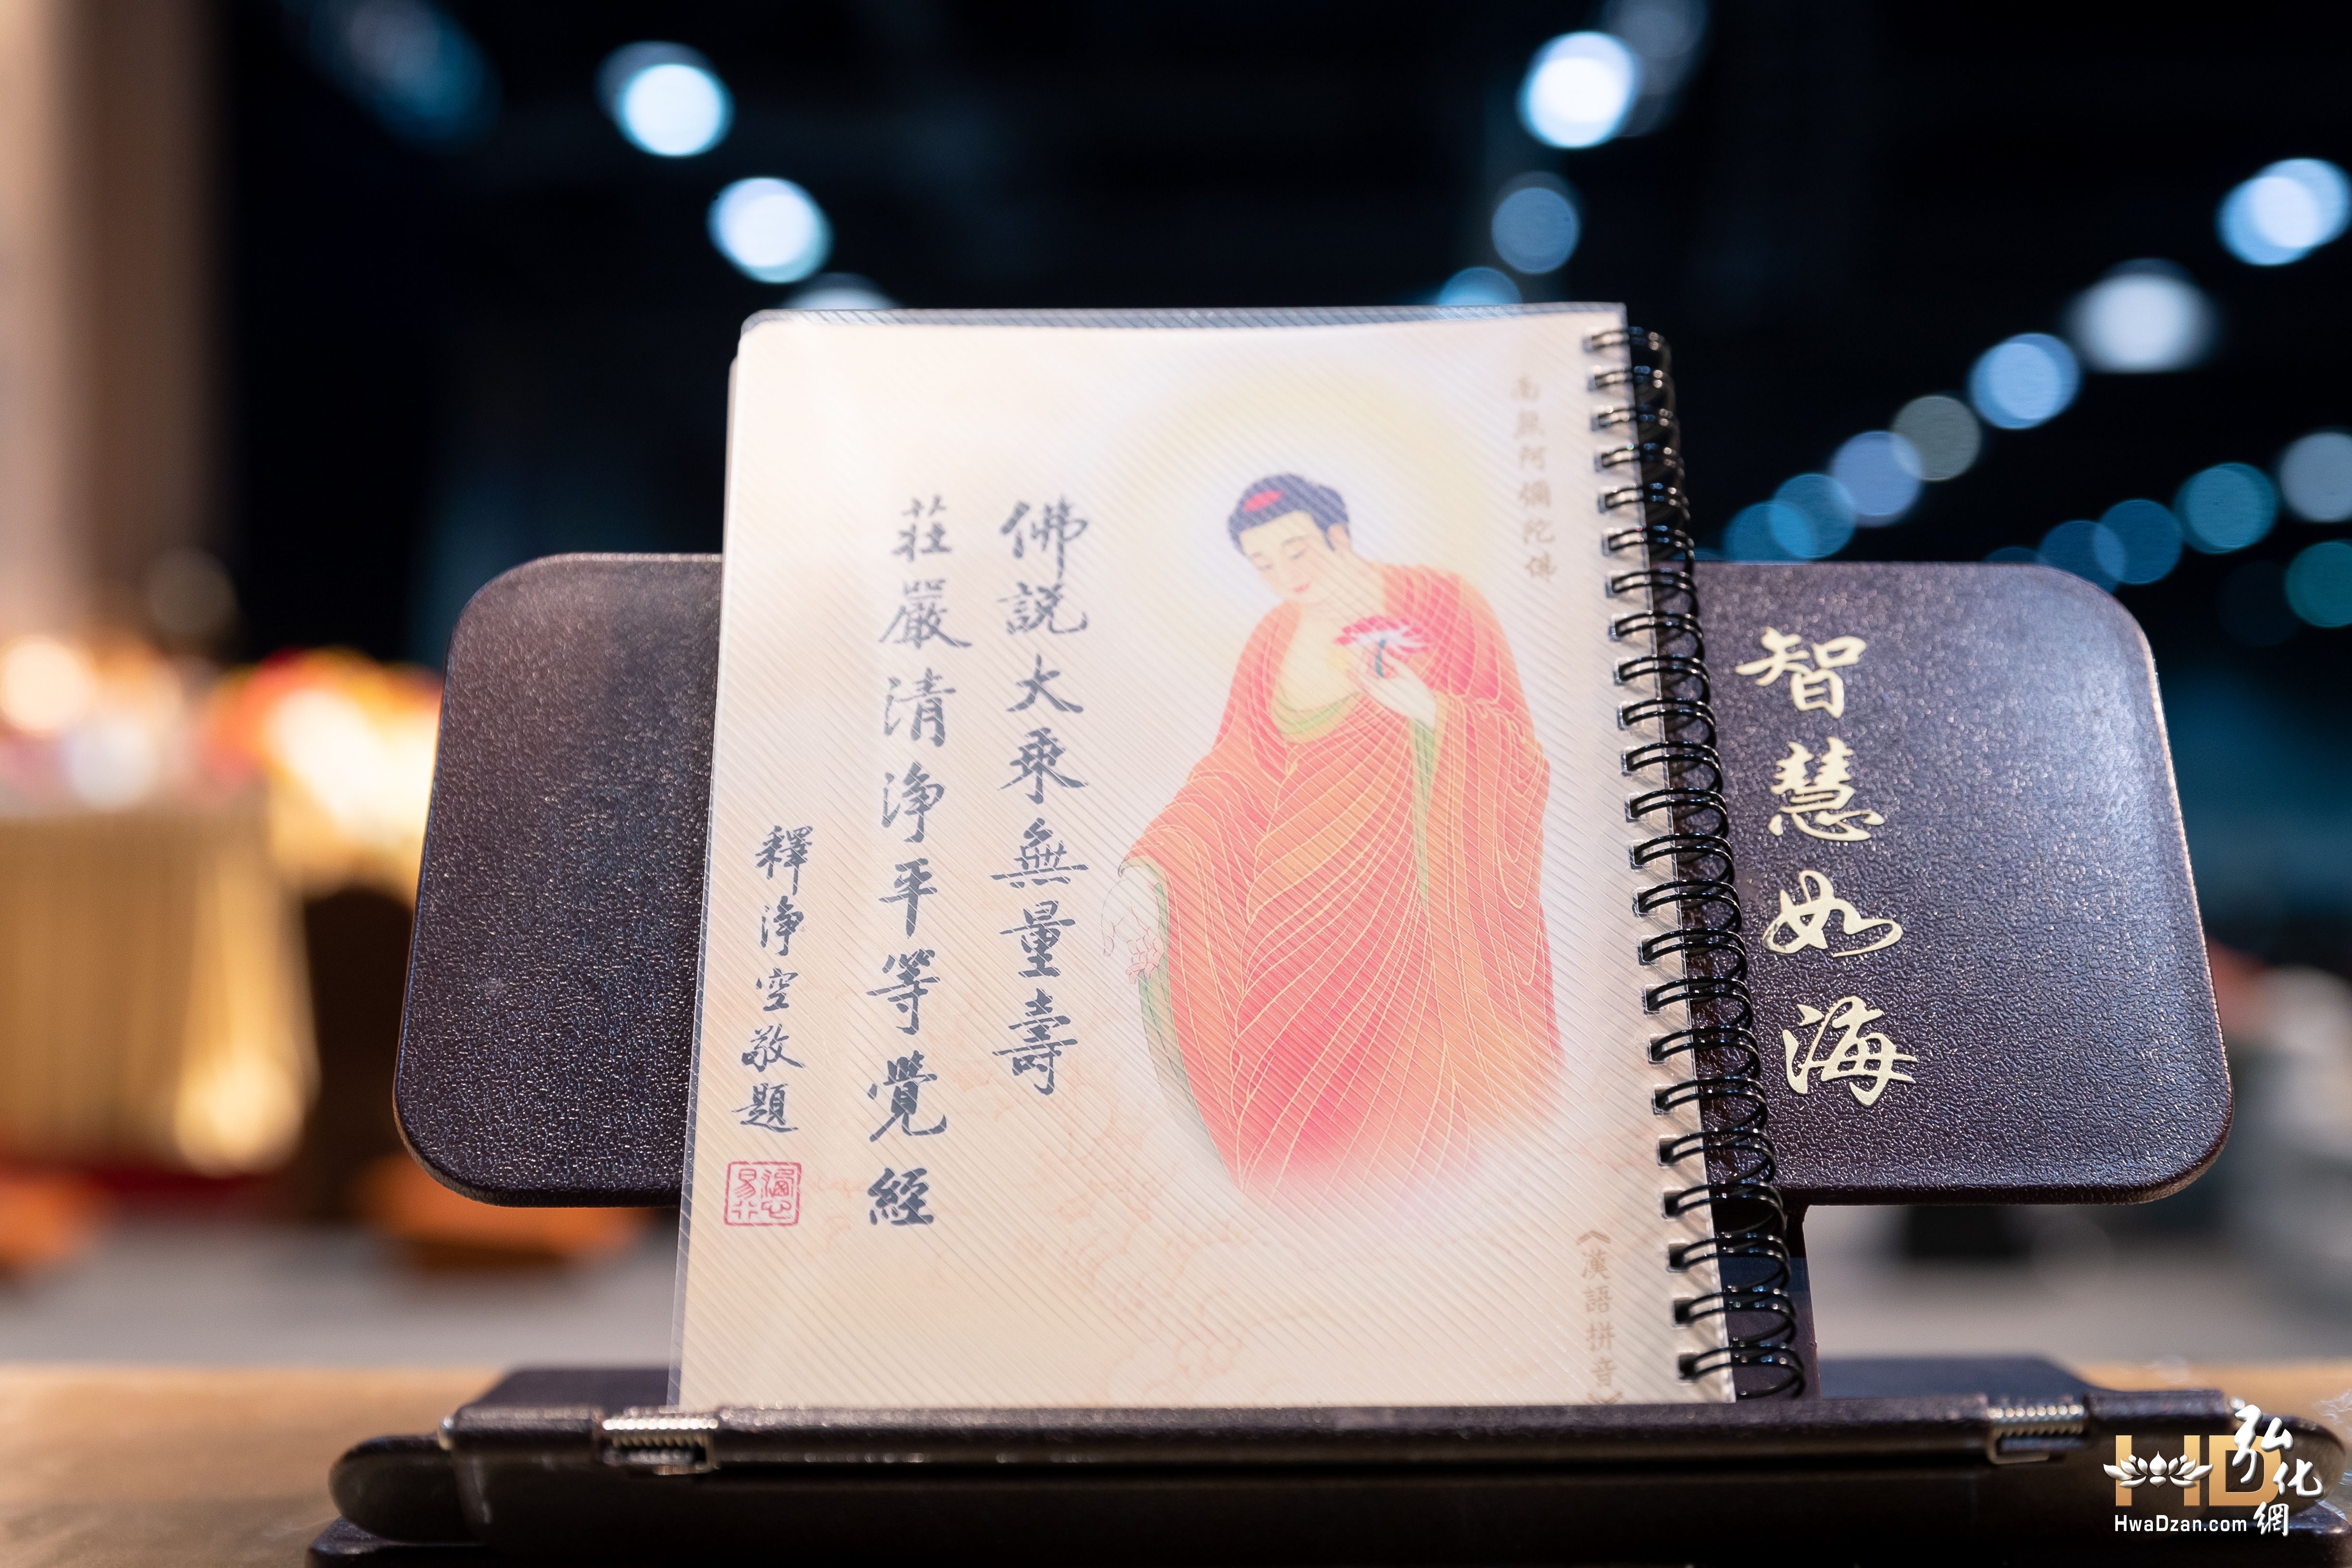 南無阿彌陀佛
佛説大乘無量壽
莊嚴清淨平等覺經
釋淨空敬題
《漢語拼音》
智慧如海
HD
弘化網
HwaDzan.com